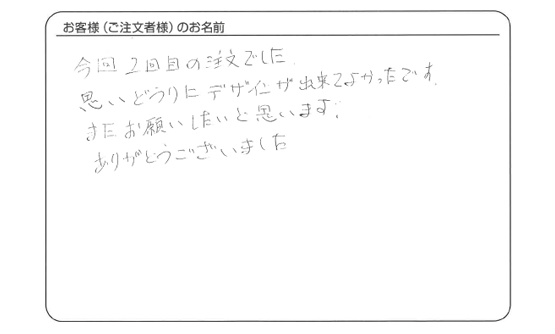 お客様(ご注文者様)のお名前
今回2回目の注文でした.
思いどうりにデザインが出来てよかったです.
またお願いしたいと思います.
ありがとうございました